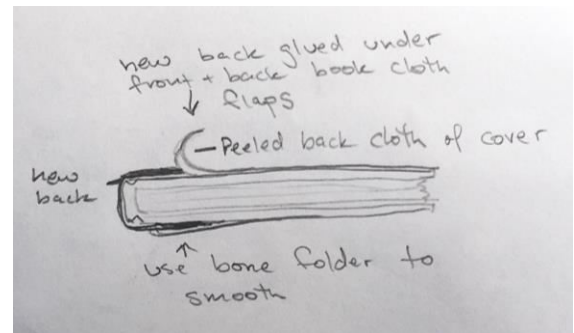 new back glued under
front + back book cloth
flaps
Peeled back cloth of cover
new
back
use bone folder to
smooth